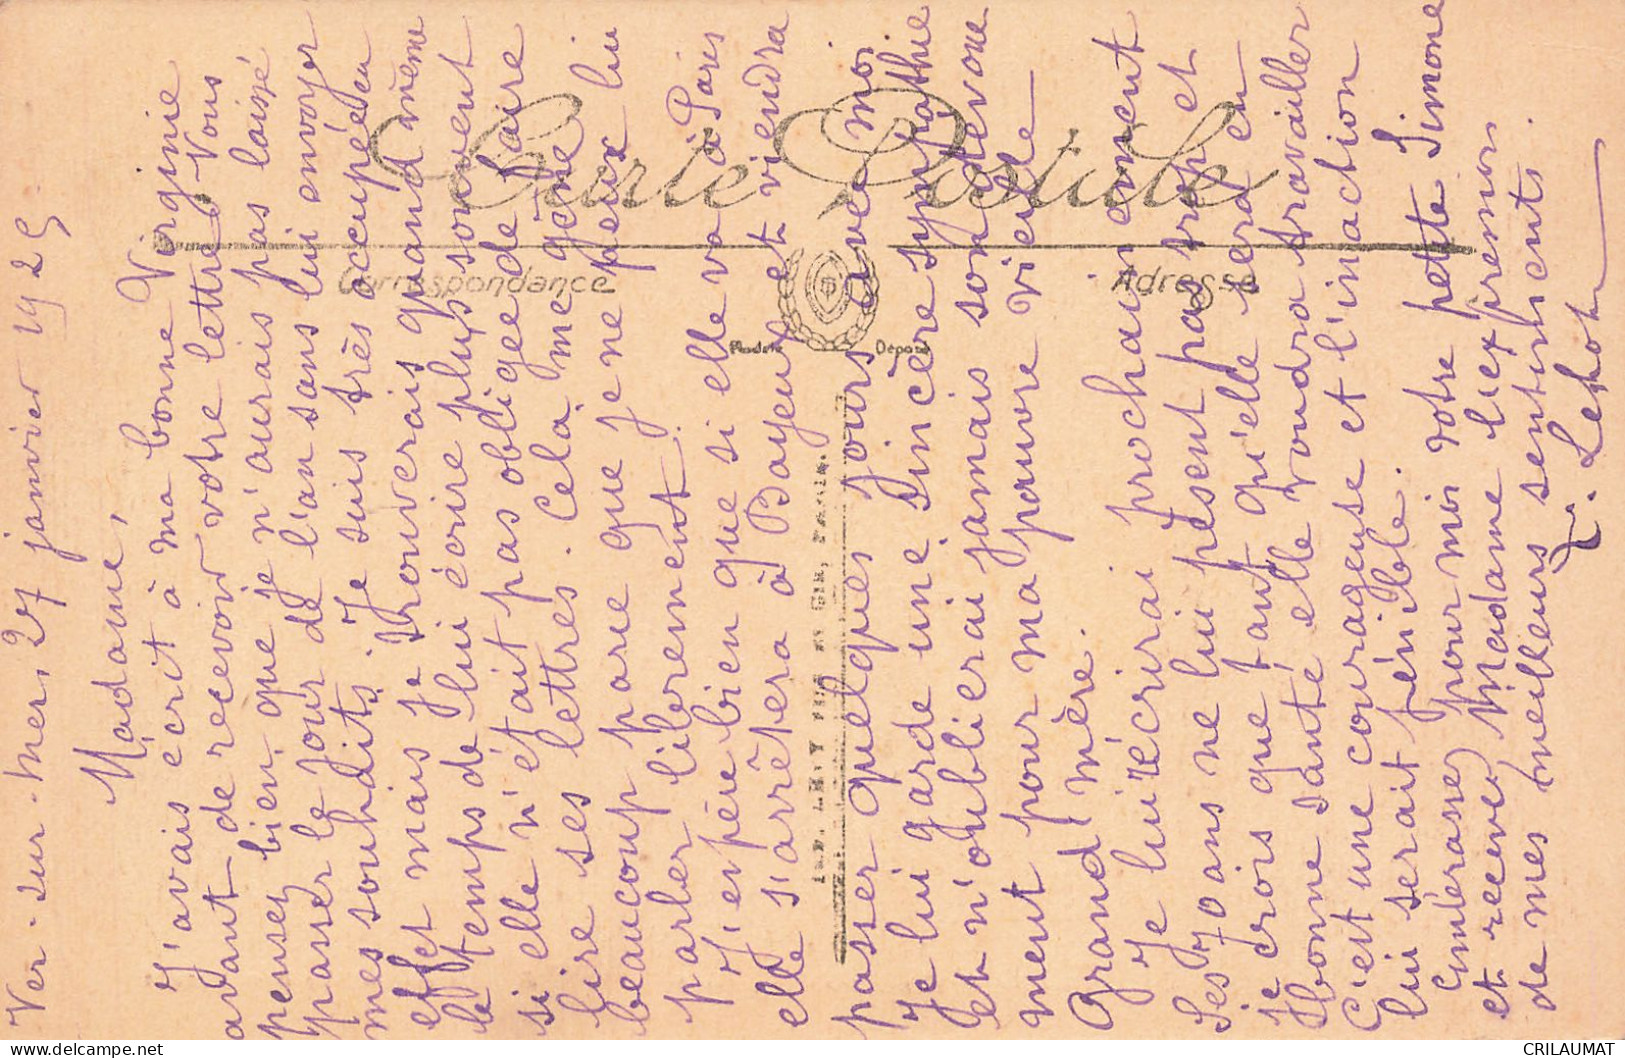 Ver-sur-mer 27 janvier 1925
Madame,
J'avais écrit à ma bonne Virginie
avant de recevoir votre lettre. Vous
pensez bien, que je n'aurais pas laissé
passer le jour de l'an sans lui envoyer
mes souhaits. Je suis très occupée en
effet mais je trouverais quand même
le temps de lui écrire plus souvent
si elle n'était pas obligée de faire
lire ses lettres. Cela me gêne
beaucoup parce que je ne peux lui
parler librement.
J'espère bien que si elle va à Paris
elle s'arrêtera à Bayeux et viendra
passer quelques jours avec moi
Je lui garde une sincère sympathie
et n'oublierai jamais son dévoue
ment pour ma pauvre vieille
Grand'mère.
Je lui récrirai prochainement
Ses 70 ans ne lui pèsent pas trop et
je crois que tant qu'elle sera en
bonne santé elle voudra travailler
C'est une courageuse et l'inaction
lui serait pénible.
Embrassez pour moi votre petite Simone
et recevez Madame l'expression
de mes meilleurs sentiments.
Carte Postale
Correspondance
Adresse
Modèle Déposé
CRILAUMAT